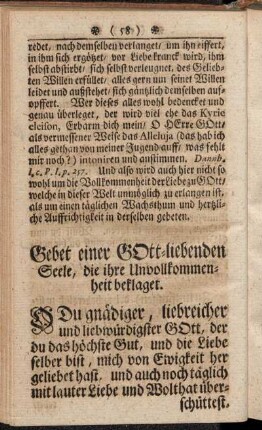 ( 58 )
redet, nach demselben verlanget, um ihn eiffert,
in ihm sich ergötzet, vor Liebe kranck wird, ihm
selbst abstirbt, sich selbst verleugnet, des Gelieb-
ten Willen erfüllet, alles gern um seinet Willen
leidet und außstehet, sich gäntzlich demselben auf-
opffert. Wer dieses alles wohl bedencket und
genau überleget, der wird viel ehe das Kyrie
eleison, Erbarm dich mein/ O HErre GOtt/
als vermessener Weise das Alleluja (das hab ich
alles gethan von meiner Jugend auff/ was fehlt
mir noch?) intoniren und anstimmen. Dannh.
l. c. P. I. p. 257. Und also wird auch hier nicht so
wohl um die Vollkommenheit der Liebe zu GOtt/
welche in dieser Welt unmöglich zu erlangen ist,
als um einen täglichen Wachsthum und hertzli-
che Auffrichtigkeit in derselben gebeten.
Gebet einer GOtt-liebenden
Seele, die ihre Unvollkommen-
heit beklaget.
O Du gnädiger, liebreicher
und liebwürdigster GOtt, der
du das höchste Gut, und die Liebe
selber bist, mich von Ewigkeit her
geliebet hast, und auch noch täglich
mit lauter Liebe und Wolthat über-
schüttest.